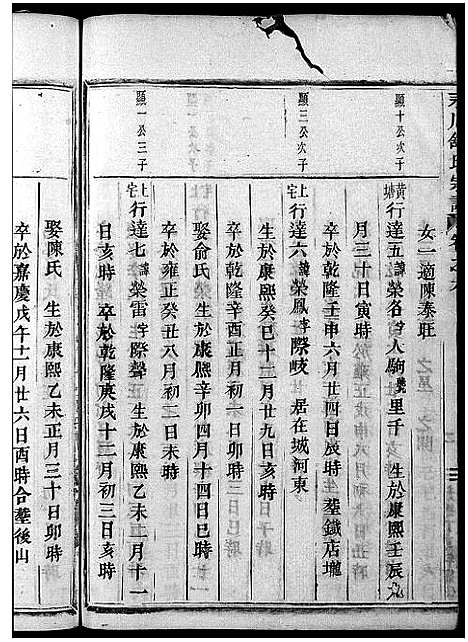 女二適陳泰旺
顯十公次子
黃塘行達五諱榮名字人駒號里千 生於康熙壬辰
月三十日寅時
卒於乾隆壬申六月廿四日辰時 塟鐵店壠
顯三公次子
上宅行達六諱榮鳳字際岐 居在城河東
生於康熙癸巳十二月廿九日亥時
卒於乾隆辛酉正月初一日卯時
娶俞氏 生於康熙辛卯四月十四日巳時
卒於雍正癸丑八月初二日未時
顯一公三子
上宅行達七諱榮雷字際聲 生於康熙乙未二月十一
日亥時 卒於乾隆庚戌十二月初三日亥時
娶陳氏 生於康熙乙未正月三十日卯時
卒於嘉慶戊午十二月廿六日酉時合塟後山